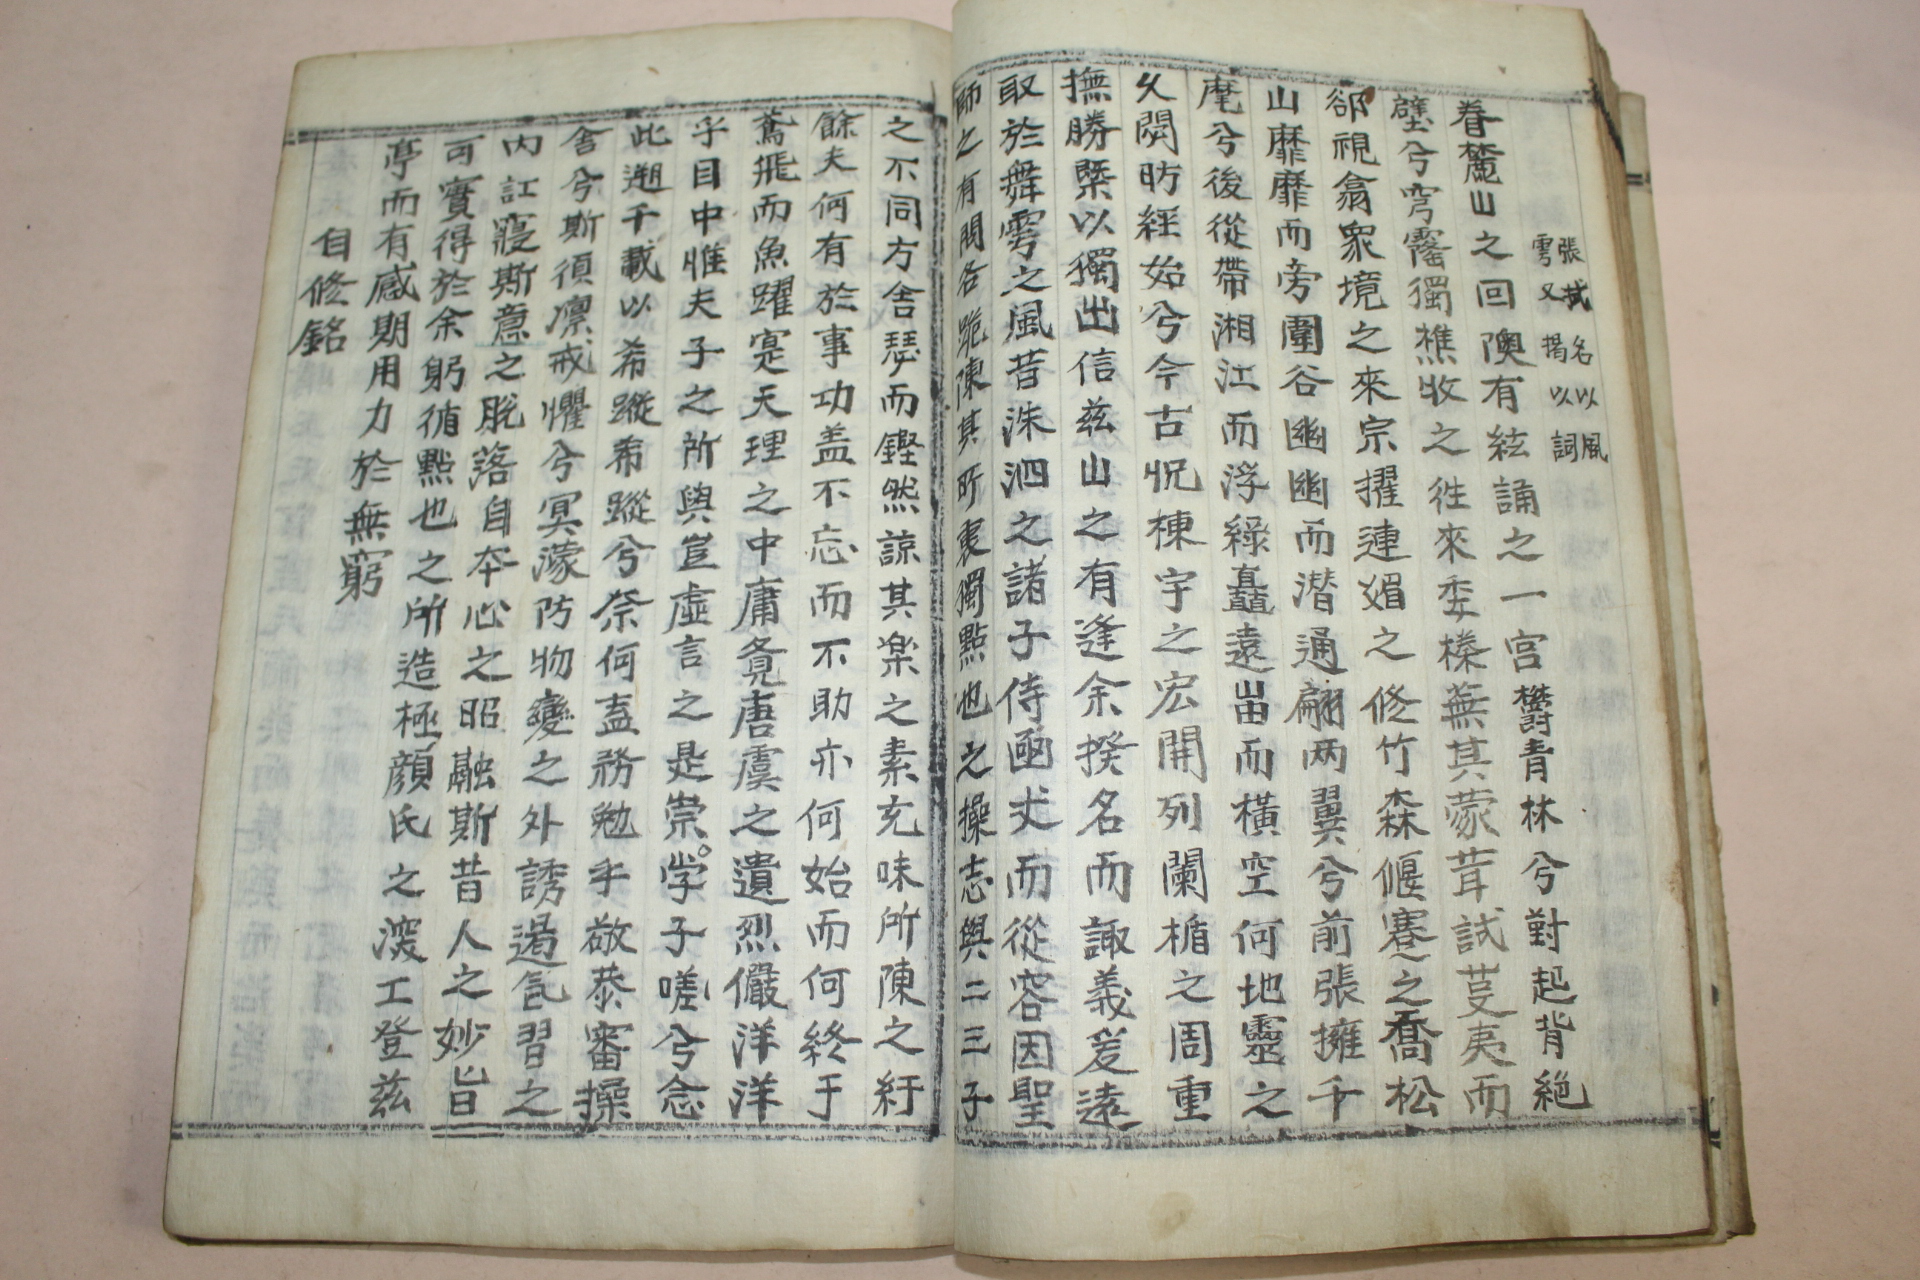 張栻名以風
雩又揭以詞
眷麓山之回隩有絃誦之一宮欝青林兮對起背絕
壁兮穹窿獨樵收之徃來委榛蕪其蒙茸試芟夷而
郤視翕衆境之來宗擢連媚之修竹森偃蹇之喬松
山靡靡而旁圍谷幽幽而潜通翩两翼兮前張擁千
麾兮後從帶湘江而浮綠矗遠岫而橫空何地靈之
久閟昉經始兮今古怳棟宇之宏開列闌楯之周重
撫勝槩以獨出信兹山之有逢余揆名而諏義爰遠
取於舞雩之風昔洙泗之諸子侍函丈而從容因聖
師之有問各跪陳其所衷獨點也之操志與二三子
之不同方舎瑟而鏗然諒其楽之素充味所陳之紆
餘夫何有於事功盖不忘而不助亦何始而何終于
鳶飛而魚躍寔天理之中庸覓唐虞之遺烈儼洋洋
乎目中惟夫子之所與豈虛言之是崇学子嗟兮念
此遡千載以希蹤希蹤兮奈何盍務勉乎敬恭審操
舎兮斯須凛戒懼兮冥濛防物變之外誘遏氣習之
内訌寢斯意之脫落自本心之昭融斯昔人之妙旨
可實得於余躬循點也之所造極顔氏之深工登兹
亭而有感期用力於無窮
自修銘